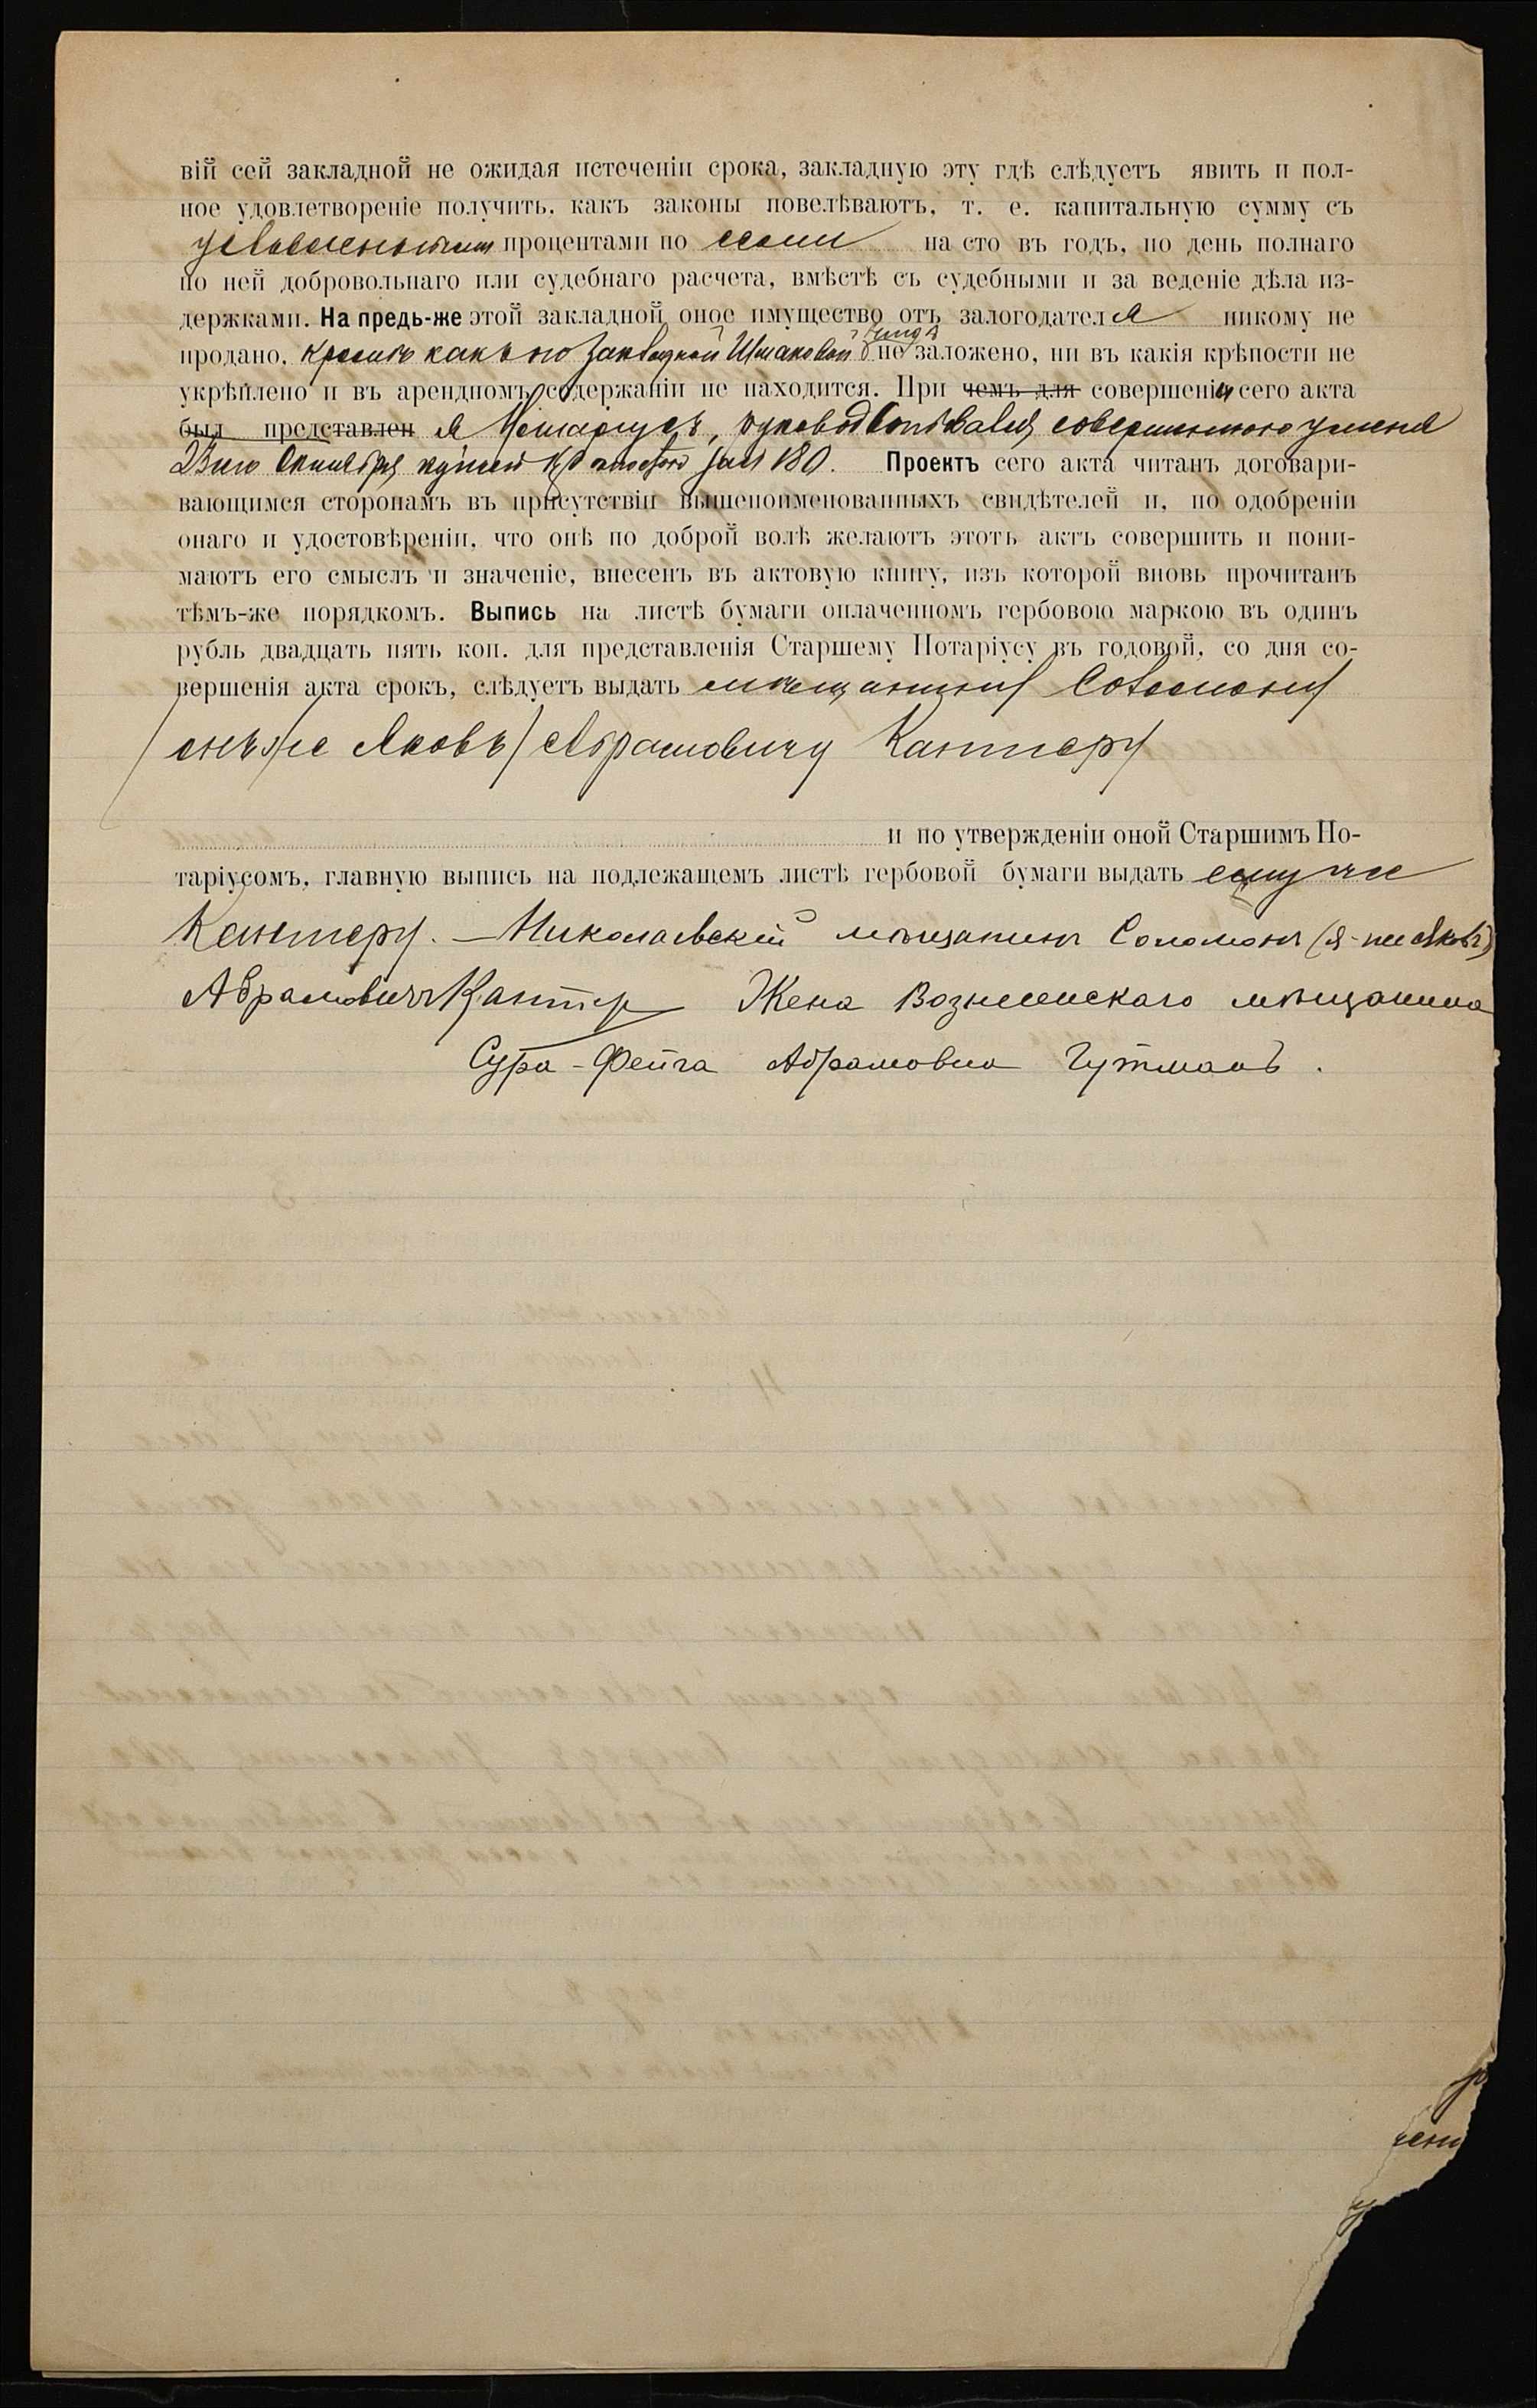 вій сей закладной не ожидая истеченіи срока, закладную эту гдѣ слѣдуетъ явить и пол-
ное удовлетвореніе получить, какъ законы повелѣваютъ, т. е. капитальную сумму съ
условленными процентами по семи на сто въ годъ, по день полнаго
по ней добровольнаго или судебнаго расчета, вмѣстѣ съ судебными и за веденіе дѣла из-
держками. На предь-же этой закладной оное имущество отъ залогодателя никому не
продано, кромѣ какъ по закладной не заложено, ни въ какія крѣпости не
укрѣплено и въ арендномъ содержаніи не находится. При чемъ для совершеніи сего акта
был представлен я Нотаріусъ, руководствовался совершенною у меня
Октября купчей за № 180. Проектъ сего акта читанъ договари-
вающимся сторонамъ въ присутствіи вышепоименованныхъ свидѣтелей и, по одобреніи
онаго и удостовѣреніи, что онѣ по доброй волѣ желаютъ этотъ актъ совершить и пони-
маютъ его смыслъ и значеніе, внесенъ въ актовую книгу, изъ которой вновь прочитанъ
тѣмъ-же порядкомъ. Выпись на листѣ бумаги оплаченномъ гербовою маркою въ одинъ
рубль двадцать пять коп. для представленія Старшему Нотаріусу въ годовой, со дня со-
вершенія акта срокъ, слѣдуетъ выдать мѣщанину Соломону
(онъ же Яковъ) Абрамовичу Кантеру
и по утвержденіи оной Старшимъ Но-
таріусомъ, главную выпись на подлежащемъ листѣ гербовой бумаги выдать ему же
Кантеру. — Николаевскій мѣщанинъ Соломонъ (я-же Яковъ)
Абрамовичъ Кантер Жена Вознесенскаго мѣщанина
Сура-Фейга Абрамовна Гутманъ.